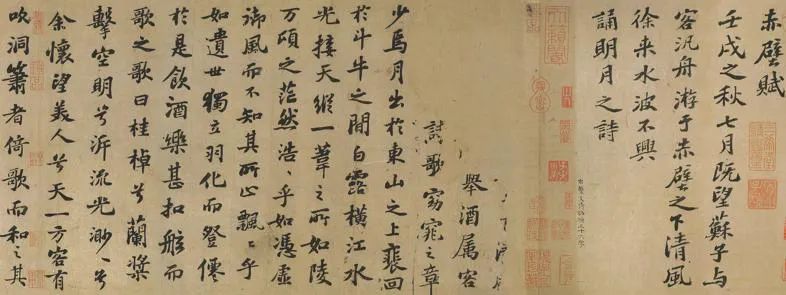 赤壁賦
壬戌之秋七月既望蘇子与
客汎舟游于赤壁之下清風
徐来水波不興
誦明月之詩
舉酒属客
詩歌窈窕之章
少焉月出於東山之上裴回
於斗牛之間白露横江水
光接天縱一葦之所如陵
万頃之茫然浩〻乎如馮虚
御風而不知其所止飄〻乎
如遺世獨立羽化而登僊
於是飲酒樂甚扣舷而
歌之歌曰桂棹兮蘭槳
擊空明兮泝流光渺〻兮
余懷望美人兮天一方客有
吹洞簫者倚歌而和之其